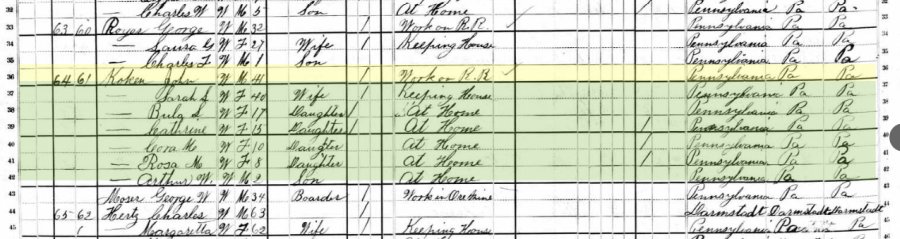 32 — Charles W W M 5 Son / At Home Pennsylvania Pa Pa 32
33 63 60 Royer George W M 32 / Work on R.R. Pennsylvania Pa Pa 33
34 — Laura G W F 27 Wife / Keeping House Pennsylvania Pa Pa
35 — Charles F W M 1 Son Pennsylvania Pa Pa 35
36 64 61 Koken John W M 41 / Work on R.R. Pennsylvania Pa Pa 36
37 — Sarah W F 40 Wife / Keeping House Pennsylvania Pa Pa 37
38 — W F 17 Daughter / At Home Pennsylvania Pa Pa 38
39 — Cathrine W F 15 Daughter / At Home / Pennsylvania Pa Pa 39
40 — Cora W F 10 Daughter At Home / Pennsylvania Pa Pa 40
41 — Rosa M W F 8 Daughter At Home / Pennsylvania Pa Pa 41
42 — Arthur W W M 2 Son At Home Pennsylvania Pa Pa 42
43 Moser George W W M 34 Boarder / Work in Ore Mine Pennsylvania Pa Pa 43
44 65 62 Hertz Charles W M 63 / Darmstadt Darmstadt Darmstadt 44
45 Margaretta W F 62 Wife / Keeping House Pennsylvania Pa Pa 45